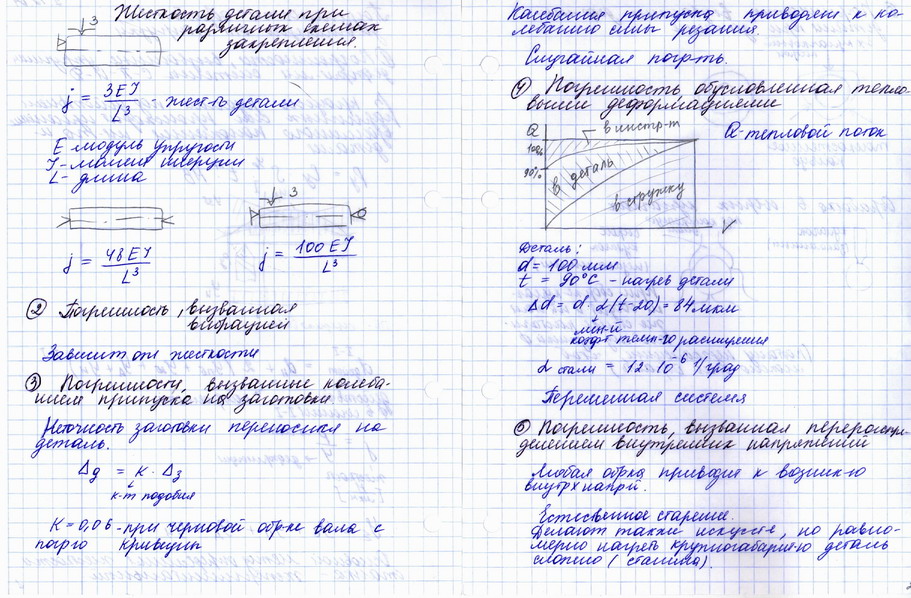 Жесткость детали при
различных схемах
закрепления.
3
j = 3EJ / L³ - жест-ть детали
E - модуль упругости
J - момент инерции
L - длина
3
j = 48EJ / L³
j = 100EJ / L³
② Погрешность, вызванная
вибрацией
Зависит от жесткости
③ Погрешности, вызванные колеба-
нием припуска на заготовки
Неточность заготовки переносится на
деталь.
Δд = K · Δз
к-т подобия
K = 0,06 - при черновой обр-ке вала с
погр-ю кривизны
Колебания припуска приводят к ко-
лебанию силы резания.
Случайная погр-ть.
④ Погрешность обусловленная тепло-
выми деформациями
Q
100%
90%
в инстр-т
в деталь
в стружку
V
Q - тепловой поток
Деталь:
d = 100 мм
t = 90°C - нагрев детали
Δd = d · α (t-20) = 84 мкм
лин-й
коэфт темп-го расширения
α стали = 12·10⁻⁶ 1/град
Переменная система
⑤ Погрешность, вызванная перераспре-
делением внутренних напряжений
Любая обр-ка приводит к возник-ю
внутр-х напр-й.
Естественное старение.
Делают также искусств, но равно-
мерно нагреть крупногабарит-ю деталь
сложно (станина).